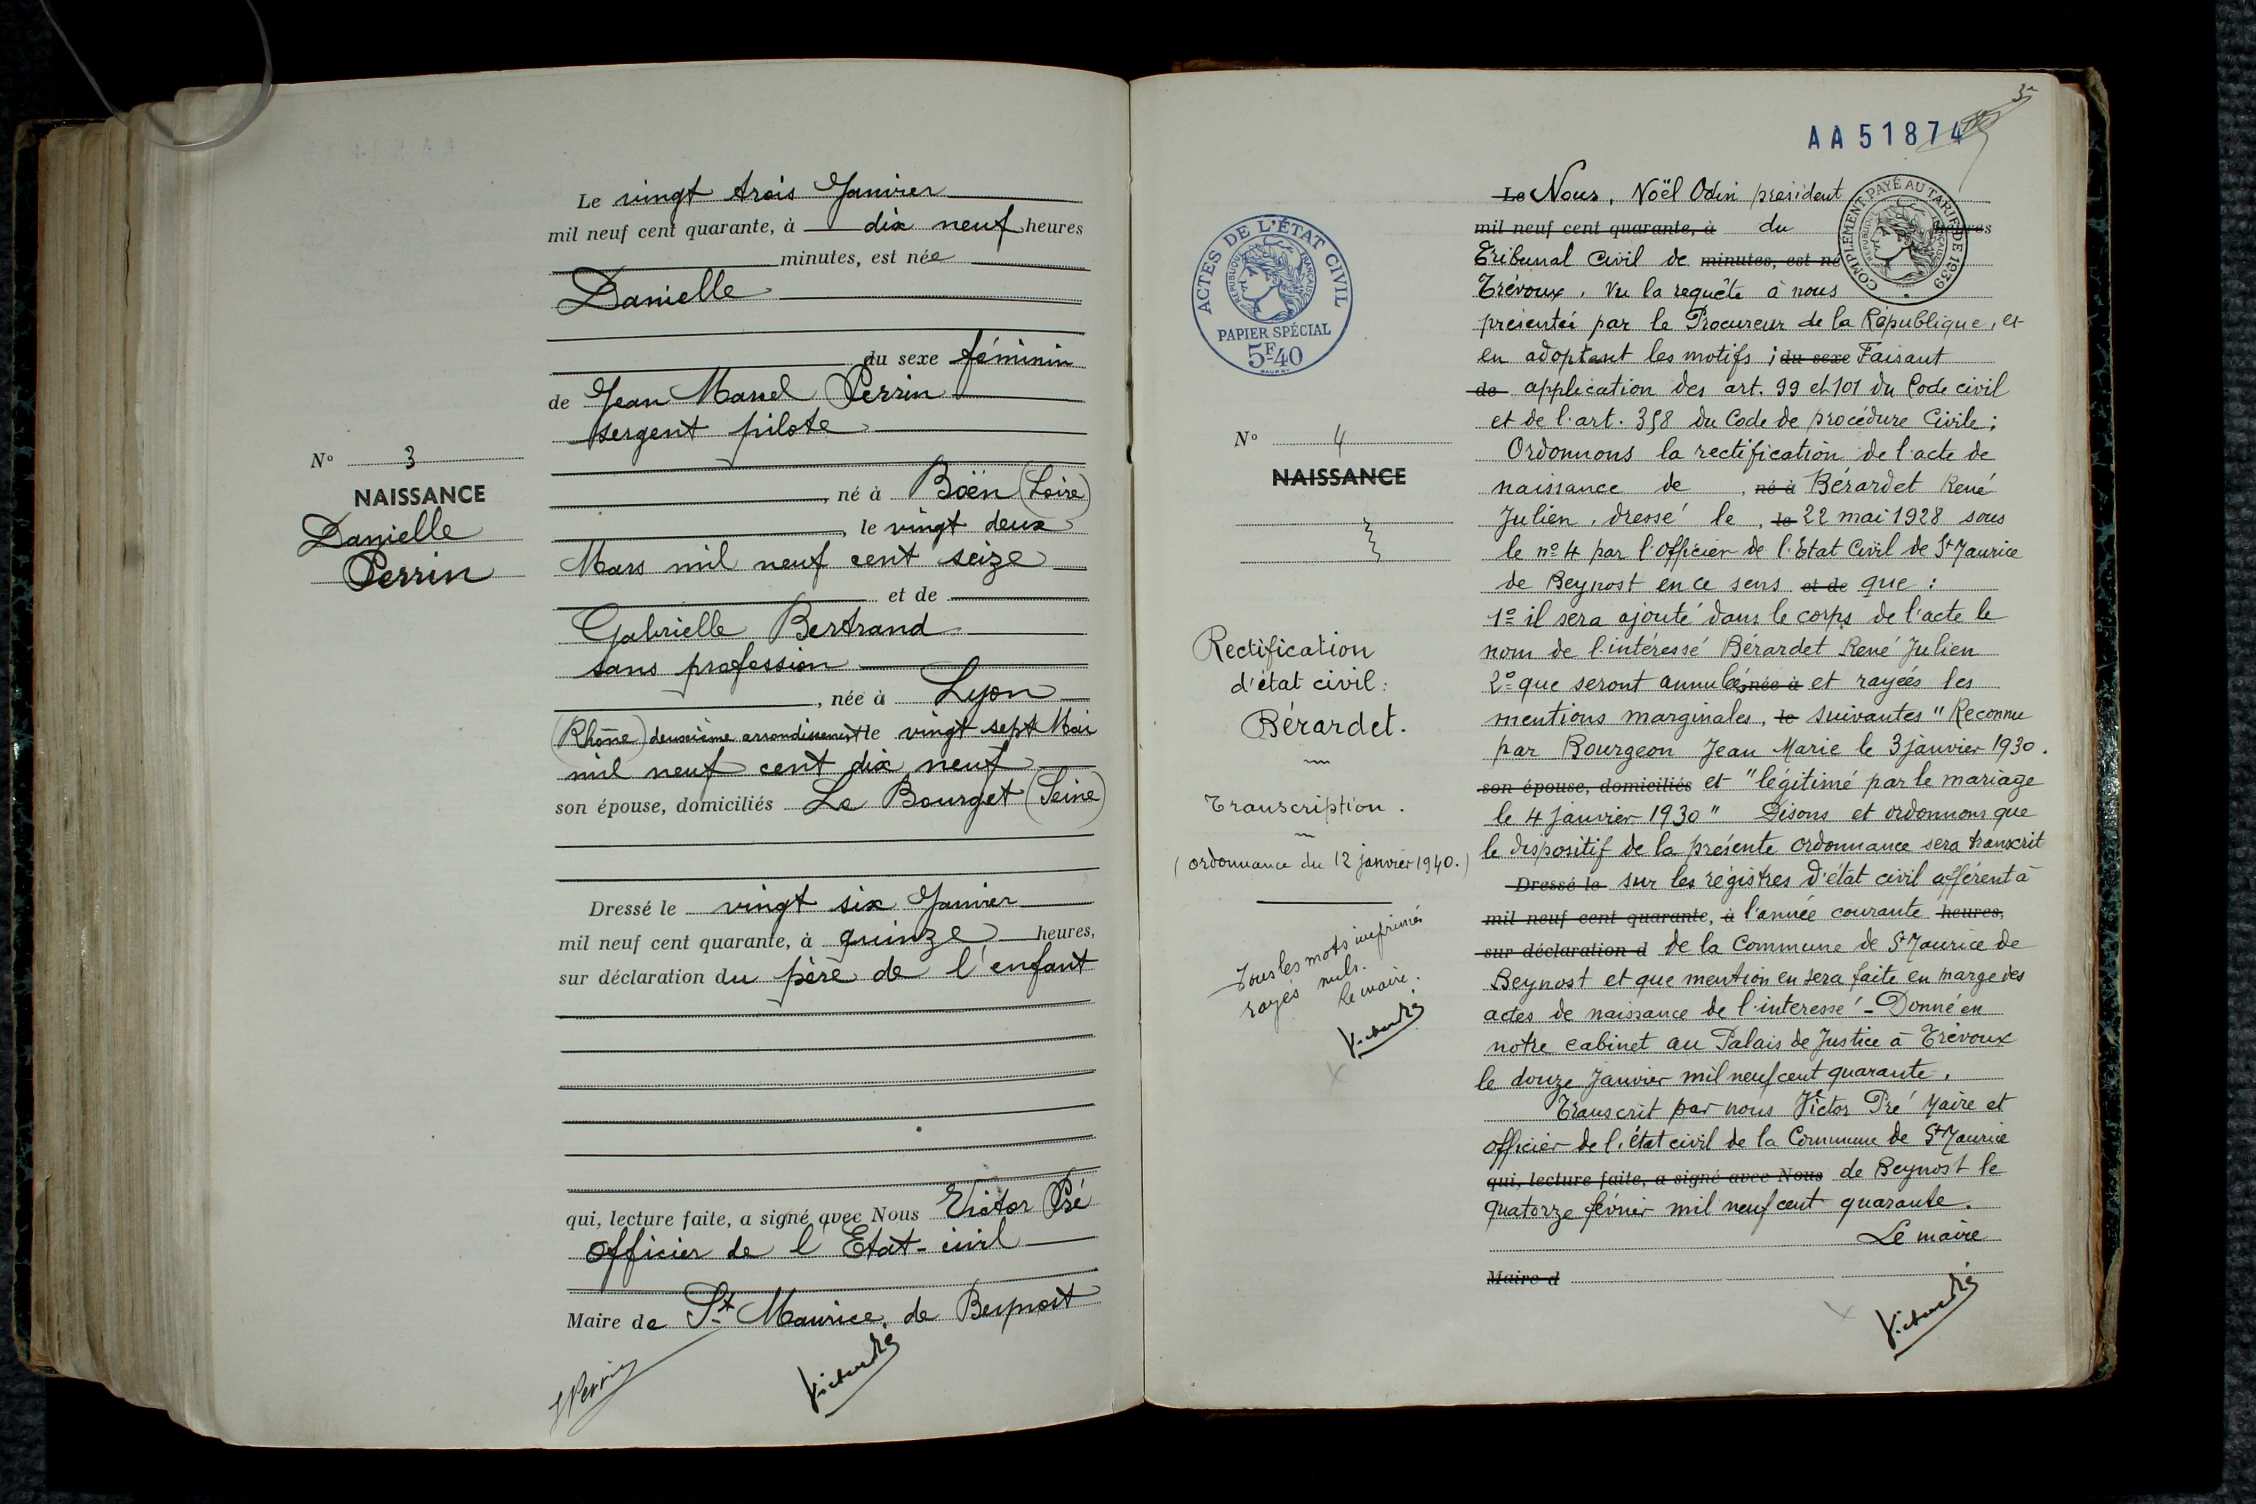 Le vingt trois Janvier
mil neuf cent quarante, à dix neuf heures
minutes, est née
Danielle
du sexe féminin
de Jean Marcel Perrin
sergent pilote
N° 3
NAISSANCE
Danielle
Perrin
, né à Boën (Loire)
, le vingt deux
Mars mil neuf cent seize
et de
Gabrielle Bertrand
sans profession
, née à Lyon
(Rhône) deuxième arrondissement le vingt sept Mai
mil neuf cent dix neuf
son épouse, domiciliés Le Bourget (Seine)
Dressé le vingt six Janvier
mil neuf cent quarante, à quinze heures,
sur déclaration du père de l'enfant
qui, lecture faite, a signé avec Nous Victor Pré
officier de l'Etat-civil
Maire de St Maurice de Beynost
JPerrin
Victor Pré
AA51874
ACTES DE L'ÉTAT CIVIL
RÉPUBLIQUE FRANÇAISE
PAPIER SPÉCIAL
5F40
COMPLÉMENT PAYÉ AU TARIF DE 1939
N° 4
NAISSANCE
Rectification
d'état civil:
Bérardet.
Transcription.
(ordonnance du 12 janvier 1940.)
Tous les mots imprimés
rayés nuls.
le maire.
Victor Pré
Le Nous, Noël Odin président
mil neuf cent quarante, à du heures
Tribunal Civil de minutes, est né
Trévoux, Vu la requête à nous
présentée par le Procureur de la République, et
en adoptant les motifs; du sexe Faisant
de application des art. 99 et 101 du Code civil
et de l'art. 358 du Code de procédure Civile;
Ordonnons la rectification de l'acte de
naissance de , né à Bérardet René
Julien, dressé le , le 22 mai 1928 sous
le n° 4 par l'Officier de l'Etat Civil de St Maurice
de Beynost en ce sens et de que:
1° il sera ajouté dans le corps de l'acte le
nom de l'intéressé Bérardet René Julien
2° que seront annulés, née à et rayées les
mentions marginales, le suivantes "Reconnu
par Bourgeon Jean Marie le 3 janvier 1930.
son épouse, domiciliés et "légitimé par le mariage
le 4 janvier 1930" Disons et ordonnons que
le dispositif de la présente ordonnance sera transcrit
Dressé le sur les régistres d'état civil afférent à
mil neuf cent quarante, à l'année courante heures,
sur déclaration d de la Commune de St Maurice de
Beynost et que mention en sera faite en marge des
actes de naissance de l'interessé - Donné en
notre cabinet au Palais de Justice à Trévoux
le douze Janvier mil neuf cent quarante.
Transcrit par nous Victor Pré Maire et
officier de l'état civil de la Commune de St Maurice
qui, lecture faite, a signé avec Nous de Beynost le
quatorze février mil neuf cent quarante.
Le maire
Maire d
Victor Pré